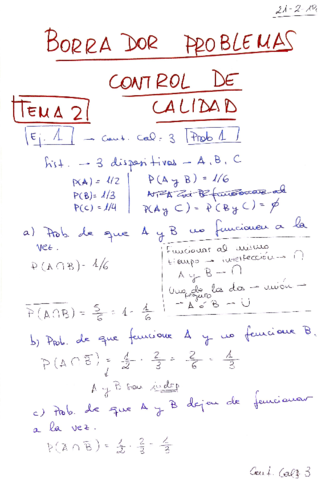 21-2-19
BORRADOR PROBLEMAS
CONTROL DE
TEMA 2 CALIDAD
Ej. 1 - Cont. Cal: 3 Prob 1
Sist. - 3 dispositivos - A, B, C
P(A) = 1/2 P(A y B) = 1/6
P(B) = 1/3
P(C) = 1/4 P(A y C) = P(B y C) = ∅
a) Prob de que A y B no funcionen a la
vez.
P(A∩B) - 1/6
Funcionar al mismo
tiempo - intersección - ∩
A y B - ∩
Uno de los dos - unión -
- A o B - ∪
P(A∩B) = 5/6 = 1 - 1/6
b) Prob. de que funcione A y no funcione B.
P(A∩B̄) = 1/2 · 2/3 = 2/6 = 1/3
A y B son indep
c) Prob. de que A y B dejen de funcionar
a la vez.
P(Ā∩B̄) = 1/2 · 2/3 = 1/3
Cont. Cal: 3